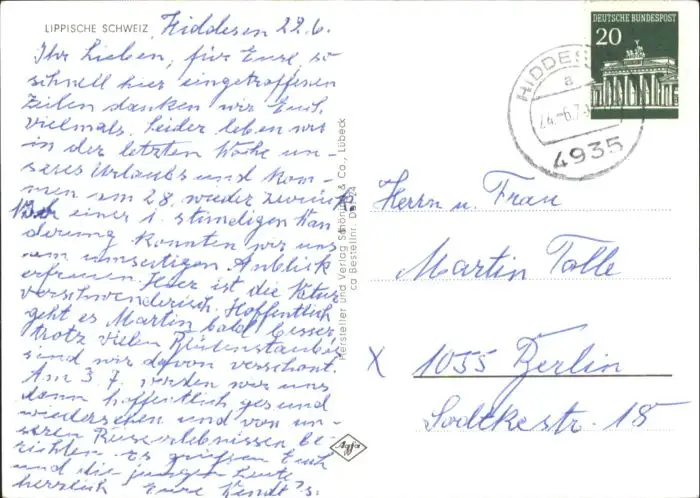 LIPPISCHE SCHWEIZ, Hiddesen 22.6.
Ihr Lieben, für Eure so
schnell hier eingetroffenen
Zeilen danken wir Euch
vielmals. Leider leben wir
in der letzten Woche un-
seres Urlaubs und kom-
men am 28. wieder zurück.
Bei einer 1. stündigen Wan
derung konnten wir uns
am umseitigen Anblick
erfreuen. Hier ist die Natur
verschwenderisch. Hoffentlich
geht es Martin bald besser,
trotz vielen Blütenstaubes
sind wir davon verschont.
Am 3.7. werden wir uns
dann hoffentlich gesund
wiedersehen und von un-
seren Reiseerlebnissen be-
richten. Es grüßen Euch
und die jungen Leute
herzlich Eure Wendt's.
Hersteller und Verlag Schöning & Co., Lübeck
ca Bestellnr.
Agfa
DEUTSCHE BUNDESPOST
20
HIDDESEN
a
24.-6.7
4935
Herrn u. Frau
Martin Tolle
X 1055 Berlin
Sodtkestr. 18